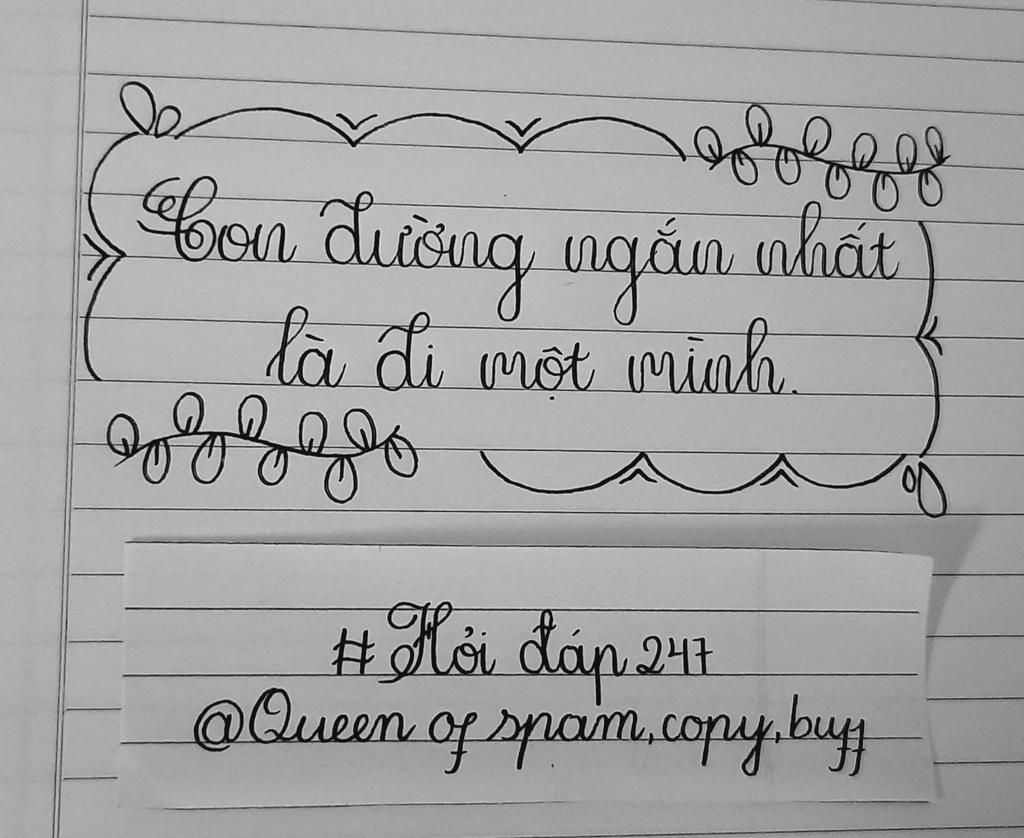 Con đường ngắn nhất
là đi một mình.
#Hỏi đáp 247
@Queen of spam, copy, buff